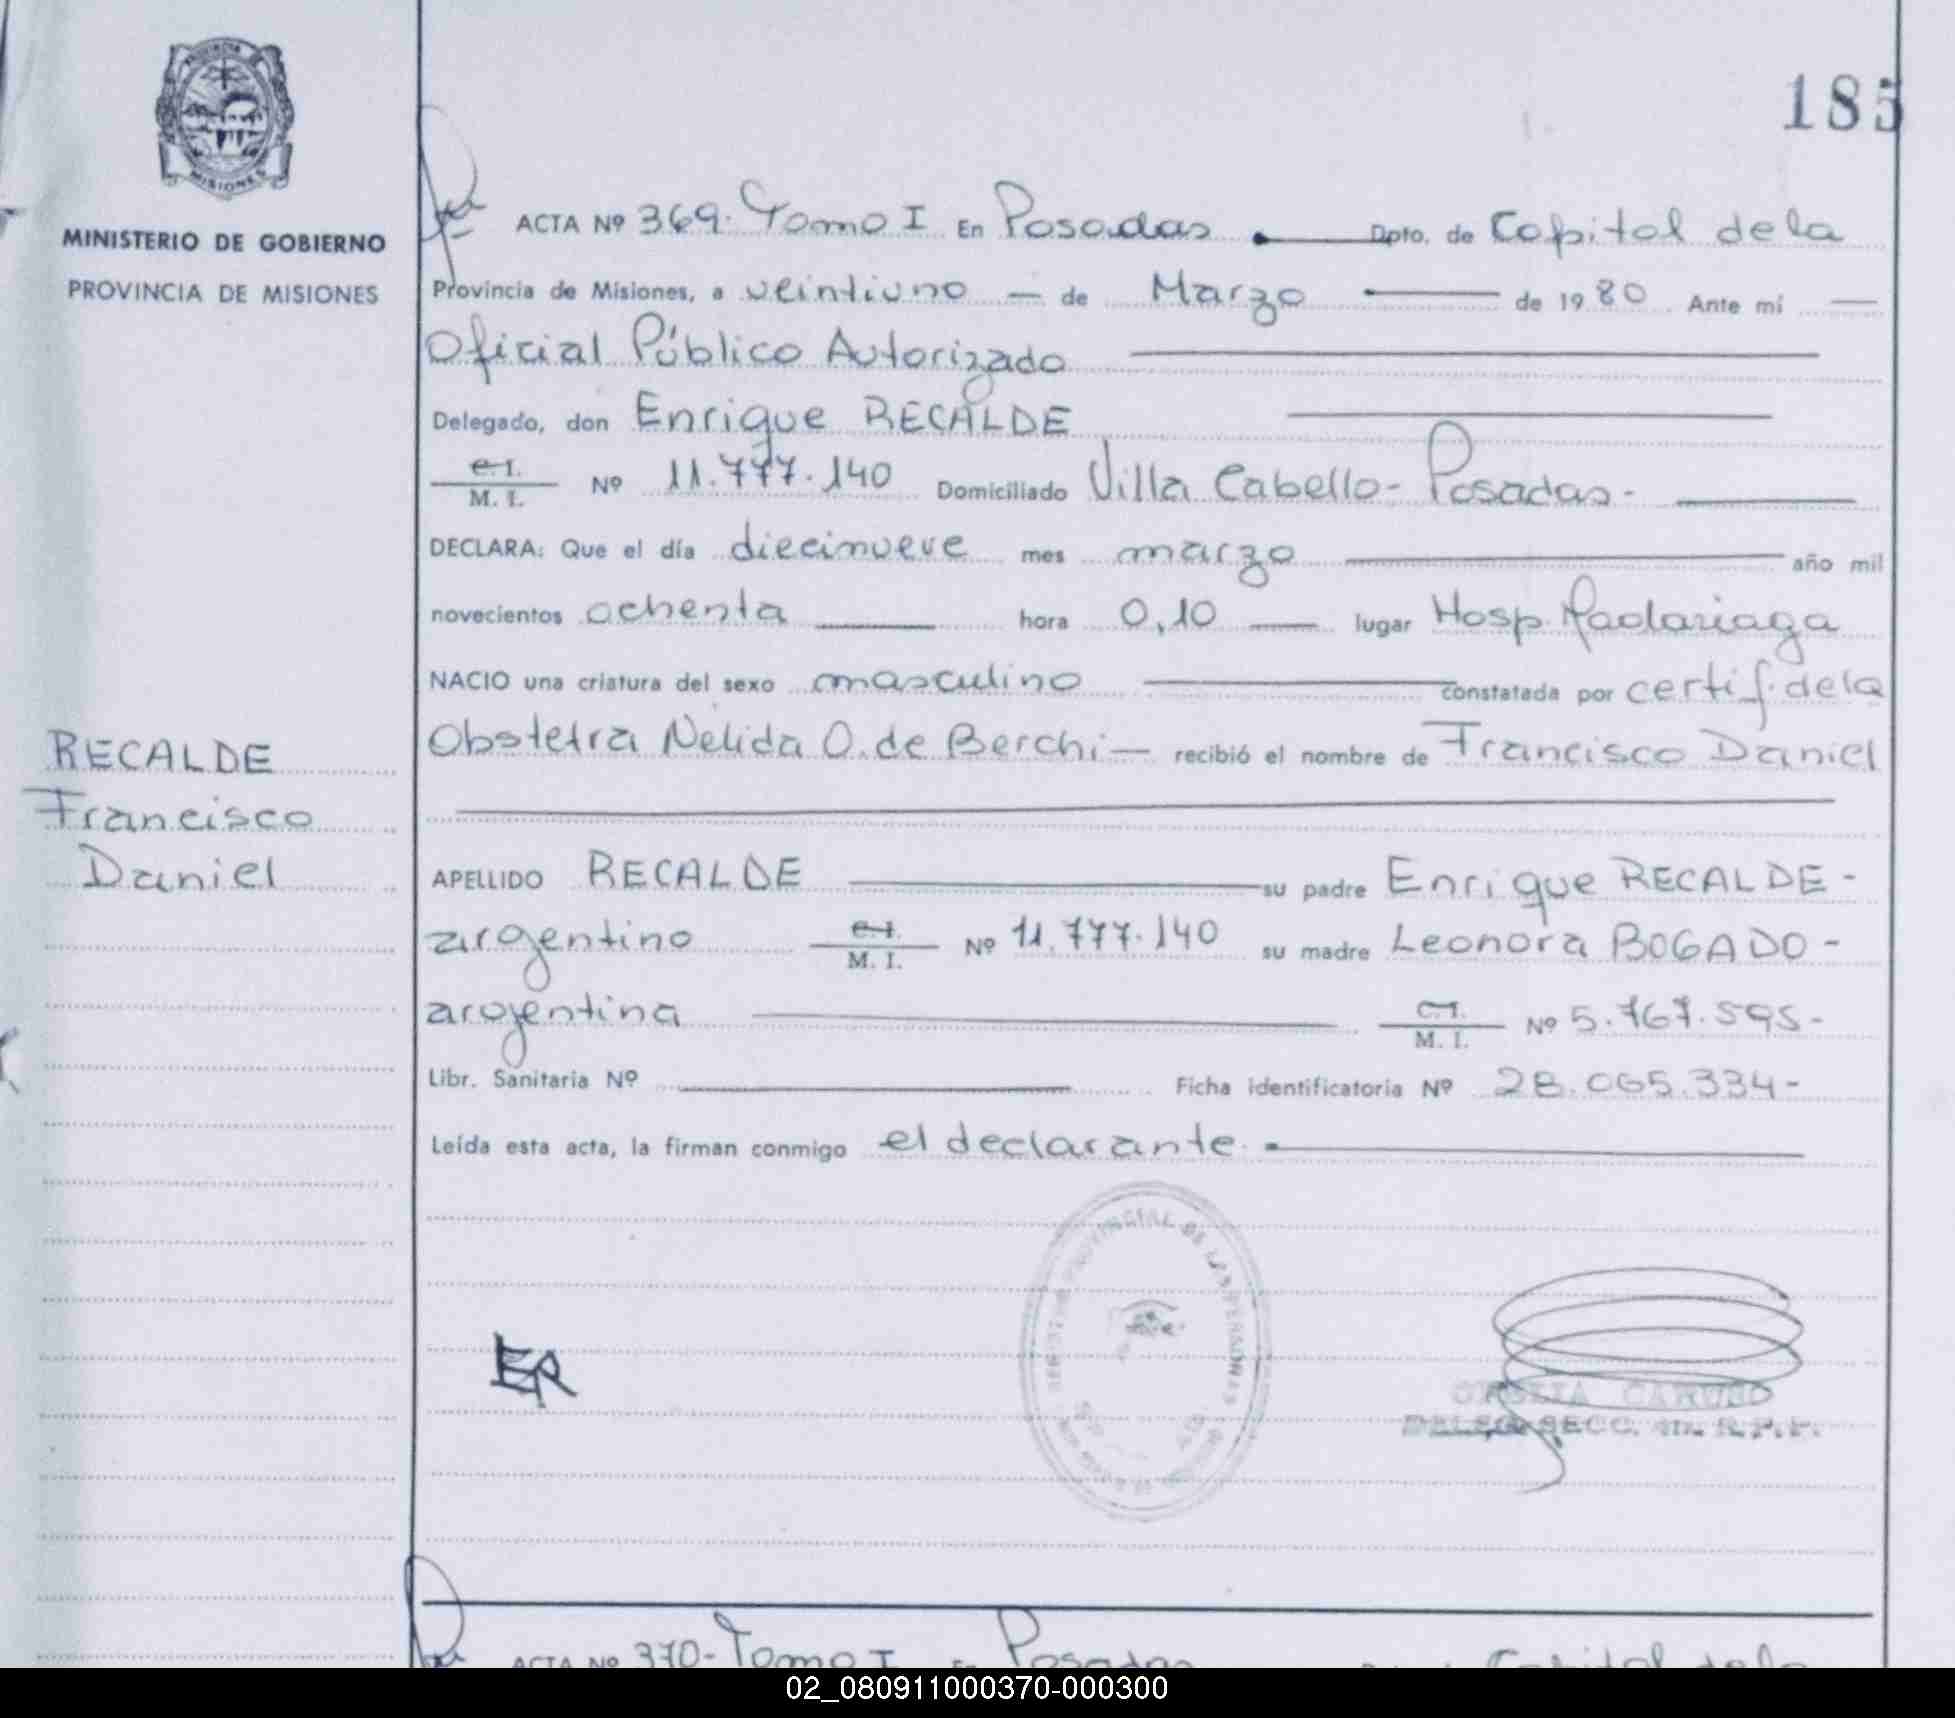 185
PROVINCIA
MISIONES
MINISTERIO DE GOBIERNO
PROVINCIA DE MISIONES
ACTA Nº 369. Tomo I En Posadas Dpto. de Capital de la
Provincia de Misiones, a veintiuno — de Marzo — de 1980 Ante mí —
Oficial Público Autorizado
Delegado, don Enrique RECALDE
C.I. / M. I. Nº 11.777.140 Domiciliado Villa Cabello- Posadas-
DECLARA: Que el día diecinueve mes marzo — año mil
novecientos ochenta — hora 0,10 — lugar Hosp. Madariaga
NACIO una criatura del sexo masculino — constatada por certif. de la
Obstetra Nelida O. de Berchi — recibió el nombre de Francisco Daniel
RECALDE
Francisco
Daniel
APELLIDO RECALDE — su padre Enrique RECALDE -
argentino C.I. / M. I. Nº 11.777.140 su madre Leonora BOGADO -
argentina — C.I. / M. I. Nº 5.767.595-
Libr. Sanitaria Nº — Ficha identificatoria Nº 28.065.334-
Leída esta acta, la firman conmigo el declarante.
ER
PROVINCIAL DE LAS PERSONAS
CARUSO
SECC. R.P.P.
ACTA Nº 370- Tomo I En Posadas Capital de la
02_080911000370-000300